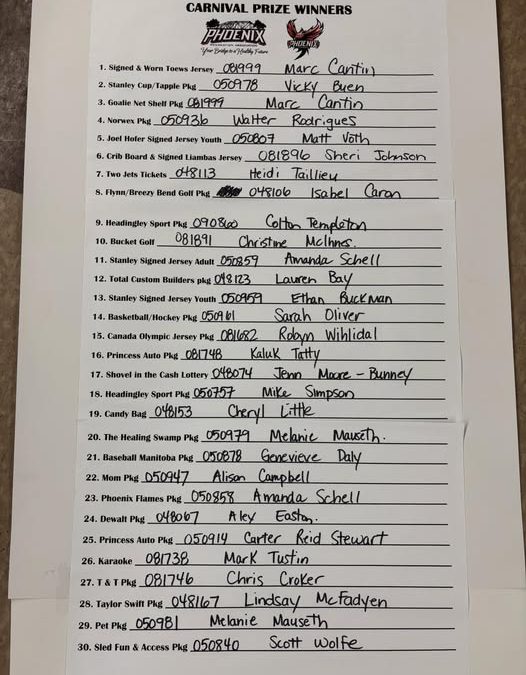 CARNIVAL PRIZE WINNERS
PHOENIX
Your Bridge to a Healthy Future
PHOENIX
1. Signed & Worn Toews Jersey 081999 Marc Cantin
2. Stanley Cup/Tapple Pkg 050978 Vicky Buen
3. Goalie Net Shelf Pkg 081999 Marc Cantin
4. Norwex Pkg 050936 Walter Rodrigues
5. Joel Hofer Signed Jersey Youth 050807 Matt Voth
6. Crib Board & Signed Liambas Jersey 081896 Sheri Johnson
7. Two Jets Tickets 048113 Heidi Taillieu
8. Flynn/Breezy Bend Golf Pkg 048106 Isabel Caron
9. Headingley Sport Pkg 090860 Colton Templeton
10. Bucket Golf 081891 Christine McInnes
11. Stanley Signed Jersey Adult 050859 Amanda Schell
12. Total Custom Builders pkg 048123 Lauren Bay
13. Stanley Signed Jersey Youth 050959 Ethan Buckman
14. Basketball/Hockey Pkg 050961 Sarah Oliver
15. Canada Olympic Jersey Pkg 081682 Robyn Wihlidal
16. Princess Auto Pkg 081748 Kaluk Tatty
17. Shovel in the Cash Lottery 048074 Jenn Moore - Bunney
18. Headingley Sport Pkg 050757 Mike Simpson
19. Candy Bag 048153 Cheryl Little
20. The Healing Swamp Pkg 050979 Melanie Mauseth.
21. Baseball Manitoba Pkg 050878 Genevieve Daly
22. Mom Pkg 050947 Alison Campbell
23. Phoenix Flames Pkg 050858 Amanda Schell
24. Dewalt Pkg 048067 Aley Easton.
25. Princess Auto Pkg 050914 Carter Reid Stewart
26. Karaoke 081738 Mark Tustin
27. T & T Pkg 081746 Chris Croker
28. Taylor Swift Pkg 048167 Lindsay McFadyen
29. Pet Pkg 050981 Melanie Mauseth
30. Sled Fun & Access Pkg 050840 Scott Wolfe